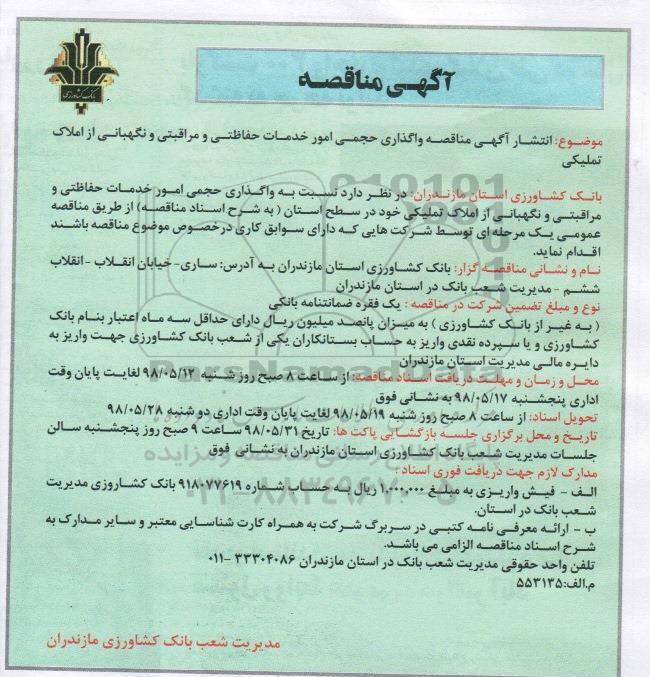 بانک کشاورزی
آگهی مناقصه
موضوع: انتشار آگهی مناقصه واگذاری حجمی امور خدمات حفاظتی و مراقبتی و نگهبانی از املاک
تملیکی
بانک کشاورزی استان مازندران: در نظر دارد نسبت به واگذاری حجمی امور خدمات حفاظتی و
مراقبتی و نگهبانی از املاک تملیکی خود در سطح استان ( به شرح اسناد مناقصه) از طریق مناقصه
عمومی یک مرحله ای توسط شرکت هایی که دارای سوابق کاری درخصوص موضوع مناقصه باشند
اقدام نماید.
نام و نشانی مناقصه گزار: بانک کشاورزی استان مازندران به آدرس: ساری- خیابان انقلاب -انقلاب
ششم - مدیریت شعب بانک در استان مازندران
نوع و مبلغ تضمین شرکت در مناقصه : یک فقره ضمانتنامه بانکی
( به غیر از بانک کشاورزی ) به میزان پانصد میلیون ریال دارای حداقل سه ماه اعتبار بنام بانک
کشاورزی و یا سپرده نقدی واریز به حساب بستانکاران یکی از شعب بانک کشاورزی جهت واریز به
دایره مالی مدیریت استان مازندران
محل و زمان و مهلت دریافت اسناد مناقصه: از ساعت ۸ صبح روز شنبه ۹۸/۰۵/۱۲ لغایت پایان وقت
اداری پنجشنبه ۹۸/۰۵/۱۷ به نشانی فوق
تحویل اسناد: از ساعت ۸ صبح روز شنبه ۹۸/۰۵/۱۹ لغایت پایان وقت اداری دو شنبه ۹۸/۰۵/۲۸
تاریخ و محل برگزاری جلسه بازگشایی پاکت ها: تاریخ ۹۸/۰۵/۳۱ ساعت ۹ صبح روز پنجشنبه سالن
جلسات مدیریت شعب بانک کشاورزی استان مازندران به نشانی فوق
مدارک لازم جهت دریافت فوری اسناد :
الف - فیش واریزی به مبلغ ۱,۰۰۰,۰۰۰ ریال به حساب شماره ۹۱۸۰۷۷۶۱۹ بانک کشاروزی مدیریت
شعب بانک در استان.
ب - ارائه معرفی نامه کتبی در سربرگ شرکت به همراه کارت شناسایی معتبر و سایر مدارک به
شرح اسناد مناقصه الزامی می باشد.
تلفن واحد حقوقی مدیریت شعب بانک در استان مازندران ۳۳۳۰۴۰۸۶ -۰۱۱
م.الف:۵۵۳۱۳۵
مدیریت شعب بانک کشاورزی مازندران
ParsNamadData
۰۲۱-۸۸۳۴۹۶۷۰-۵